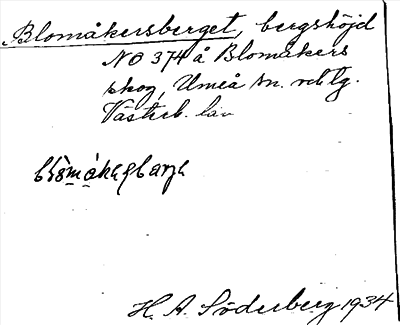 Blomåkersberget, bergshöjd
NO 374 å Blomåkers
skog, Umeå sn. o
Västerb. län
H. A. Söderberg 1934